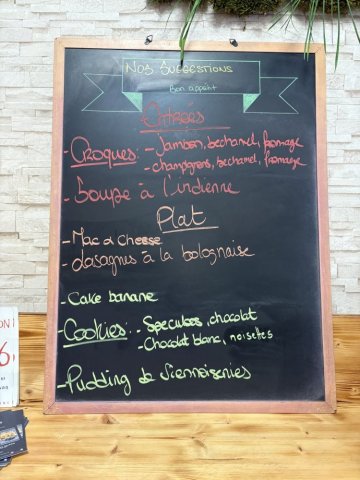 NOS SUGGESTIONS
Bon appétit
Entrées
- Croques: - Jambon, bechamel, fromage
- champignons, bechamel, fromage
- Soupe à l'indienne
Plat
- Mac & Cheese
- Lasagnes à la bolognaise
- Cake banane
- Cookies: - Speculoos, chocolat
- Chocolat blanc, noisettes
- Pudding de Viennoiseries